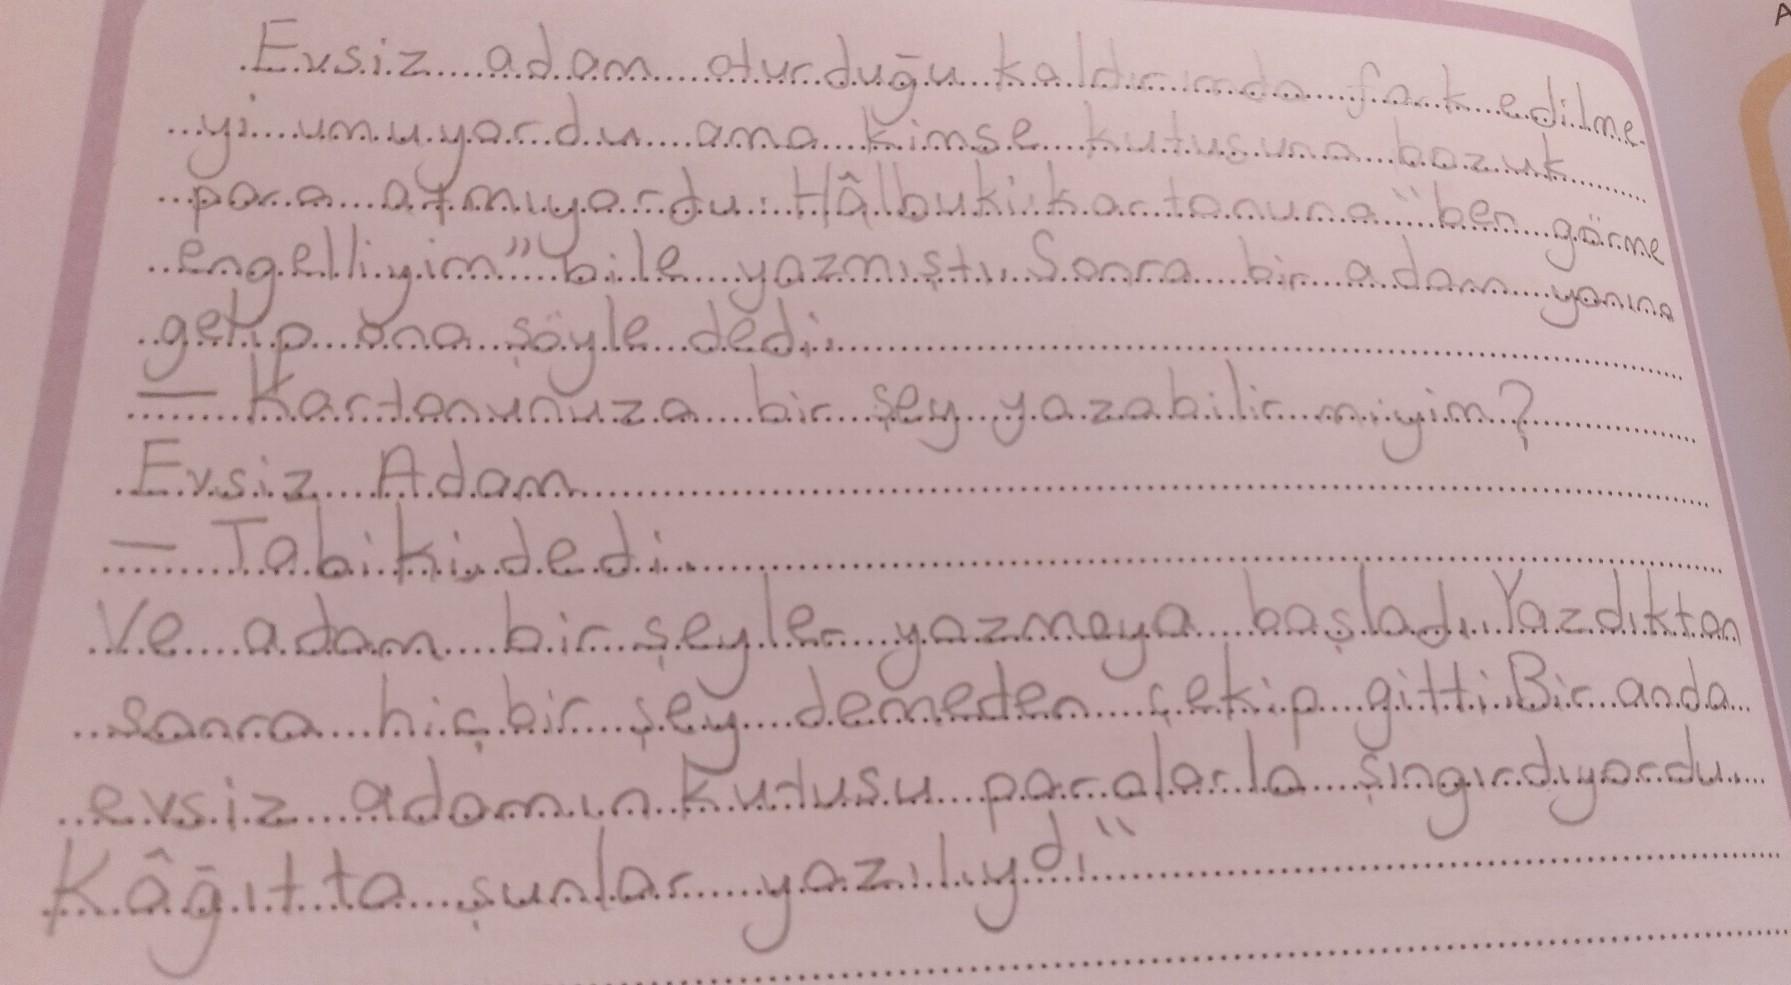 Evsiz adam oturduğu kaldırımda fark edilme-
yi umuyordu ama kimse kutusuna bozuk
para atmıyordu. Hâlbuki kartonuna "ben görme
engelliyim" bile yazmıştı. Sonra bir adam yanına
gelip ona şöyle dedi:
— Kartonunuza bir şey yazabilir miyim?
Evsiz Adam
— Tabiki, dedi.
Ve adam bir şeyler yazmaya başladı. Yazdıktan
sonra hiçbir şey demeden çekip gitti. Bir anda
evsiz adamın kutusu paralarla şıngırdıyordu.
Kâğıtta şunlar yazılıydı "